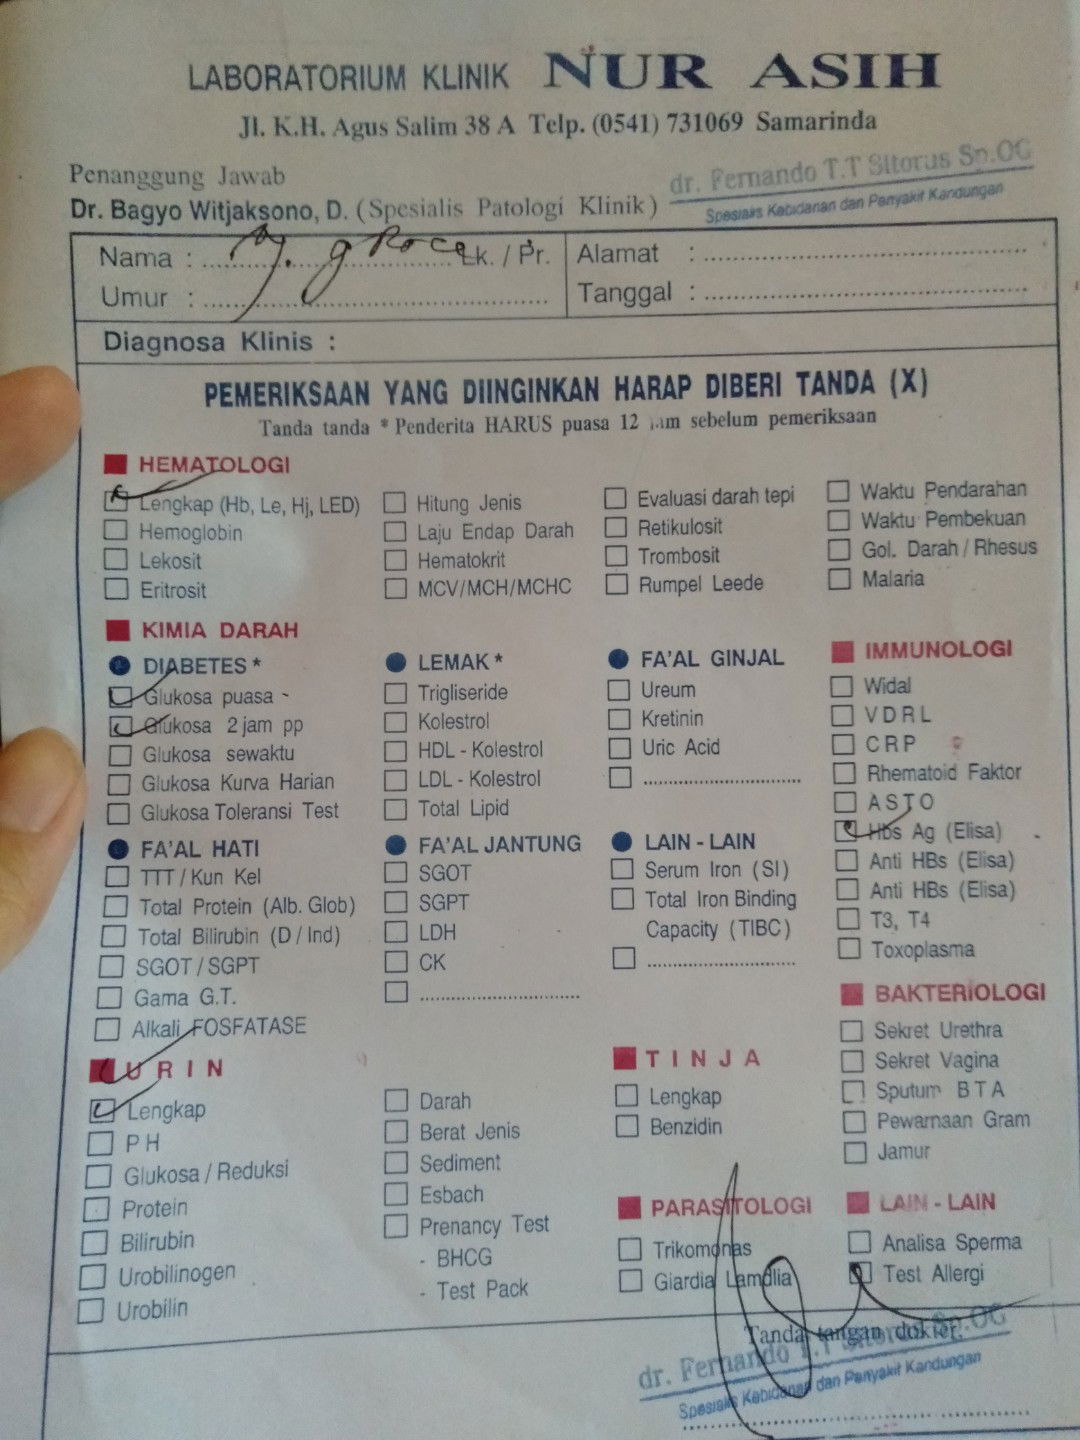 LABORATORIUM KLINIK NUR ASIH
Jl. K.H. Agus Salim 38 A Telp. (0541) 731069 Samarinda
Penanggung Jawab
dr. Fernando T.T Sitorus Sp.OG
Dr. Bagyo Witjaksono, D. (Spesialis Patologi Klinik)
Spesialis Kebidanan dan Penyakit Kandungan
Nama : Lk. / Pr.
Alamat :
Umur :
Tanggal :
Diagnosa Klinis :
PEMERIKSAAN YANG DIINGINKAN HARAP DIBERI TANDA (X)
Tanda tanda * Penderita HARUS puasa 12 jam sebelum pemeriksaan
HEMATOLOGI
Lengkap (Hb, Le, Hj, LED)
Hemoglobin
Lekosit
Eritrosit
Hitung Jenis
Laju Endap Darah
Hematokrit
MCV/MCH/MCHC
Evaluasi darah tepi
Retikulosit
Trombosit
Rumpel Leede
Waktu Pendarahan
Waktu Pembekuan
Gol. Darah / Rhesus
Malaria
KIMIA DARAH
DIABETES *
Glukosa puasa
Glukosa 2 jam pp
Glukosa sewaktu
Glukosa Kurva Harian
Glukosa Toleransi Test
LEMAK *
Trigliseride
Kolestrol
HDL - Kolestrol
LDL - Kolestrol
Total Lipid
FA'AL GINJAL
Ureum
Kretinin
Uric Acid
IMMUNOLOGI
Widal
VDRL
CRP
Rhematoid Faktor
ASTO
Hbs Ag (Elisa)
Anti HBs (Elisa)
Anti HBs (Elisa)
T3, T4
Toxoplasma
FA'AL HATI
TTT / Kun Kel
Total Protein (Alb. Glob)
Total Bilirubin (D / Ind)
SGOT / SGPT
Gama G.T.
Alkali FOSFATASE
FA'AL JANTUNG
SGOT
SGPT
LDH
CK
LAIN - LAIN
Serum Iron (SI)
Total Iron Binding
Capacity (TIBC)
BAKTERIOLOGI
Sekret Urethra
Sekret Vagina
Sputum BTA
Pewarnaan Gram
Jamur
URIN
Lengkap
PH
Glukosa / Reduksi
Protein
Bilirubin
Urobilinogen
Urobilin
Darah
Berat Jenis
Sediment
Esbach
Prenancy Test
- BHCG
- Test Pack
TINJA
Lengkap
Benzidin
PARASITOLOGI
Trikomonas
Giardia Lamdlia
LAIN - LAIN
Analisa Sperma
Test Allergi
Tanda tangan dokter,
dr. Fernando T.T Sitorus Sp.OG
Spesialis Kebidanan dan Penyakit Kandungan